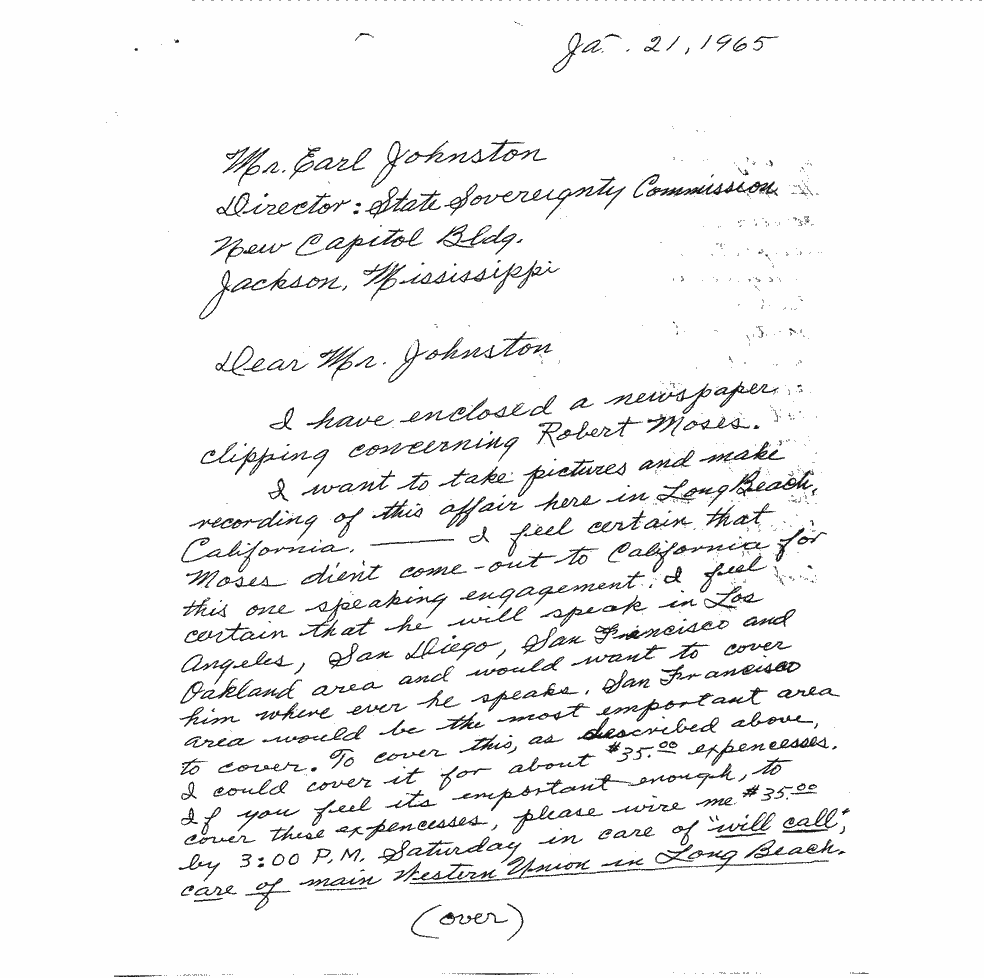 Ja . 21, 1965
Mr. Earl Johnston
Director: State Sovereignty Commission
New Capitol Bldg.
Jackson, Mississippi
Dear Mr. Johnston
I have enclosed a newspaper
clipping concerning Robert Moses.
I want to take pictures and make
recording of this affair here in Long Beach,
California. ——— I feel certain that
Moses dient come-out to California for
this one speaking engagement. I feel
certain that he will speak in Los
Angeles, San Diego, San Francisco and
Oakland area and would want to cover
him where ever he speaks. San Francisco
area would be the most important area
to cover. To cover this, as described above,
I could cover it for about $35.00 expencesses.
If you feel its important enough, to
cover these expencesses, please wire me $35.00
by 3:00 P.M. Saturday in care of "will call",
care of main Western Union in Long Beach.
(over)